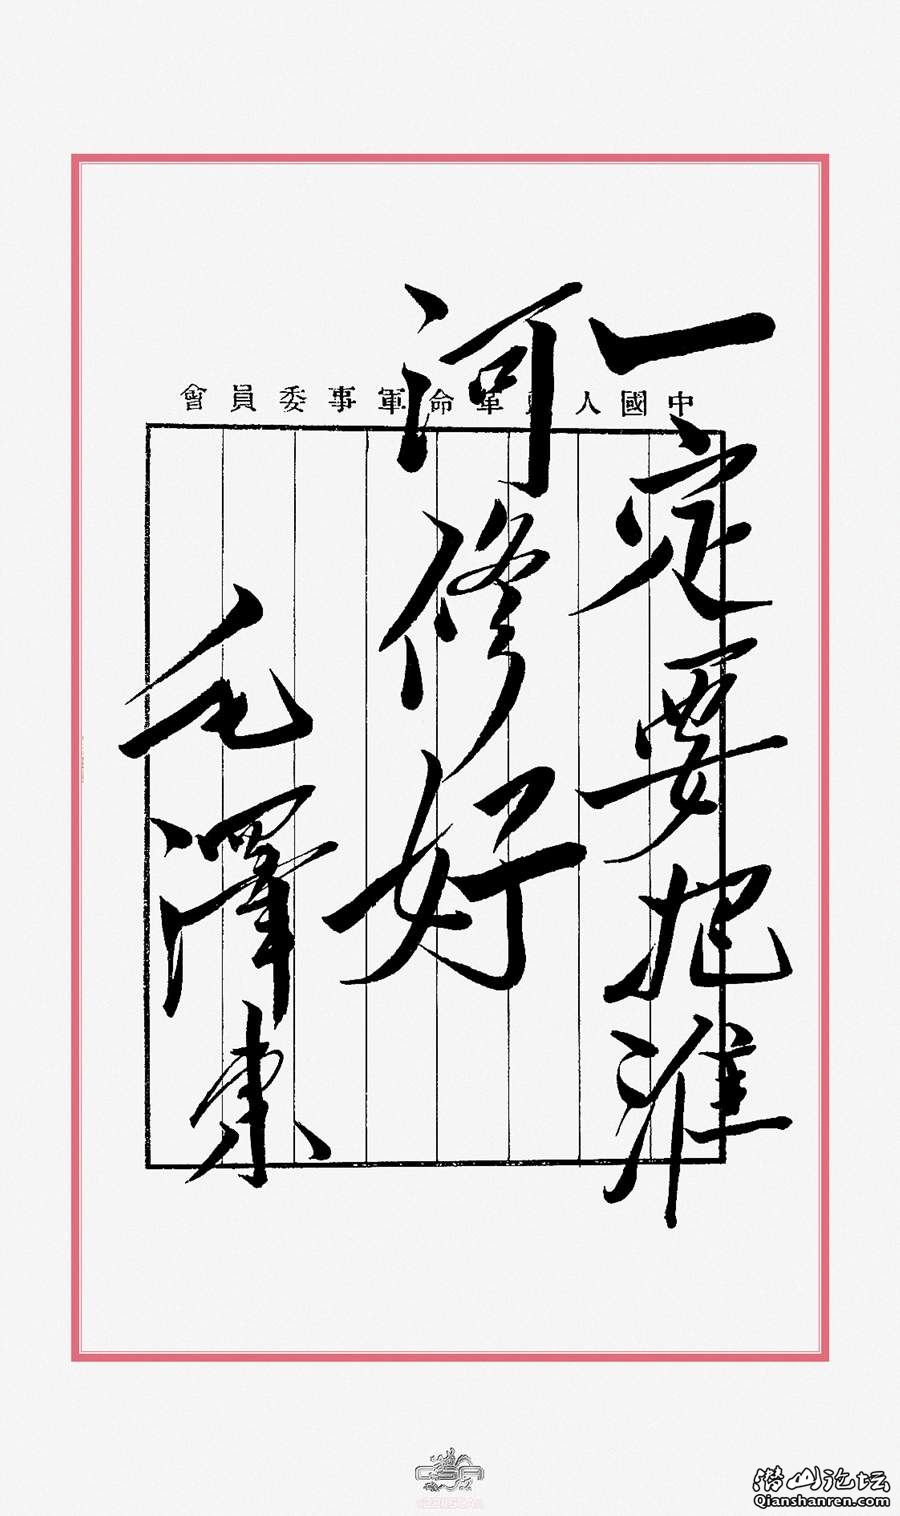 中國人民革命軍事委員會
一定要把淮
河修好
毛澤東
潜山论坛
Qianshanren.com